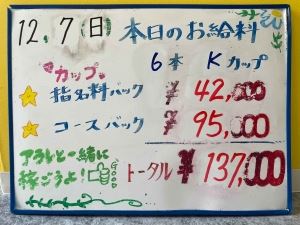 12.7(日) 本日のお給料
カップ。 6本 Kカップ
指名料バック ¥ 42,000
コースバック ¥ 95,000
アラレと一緒に
稼ごうよ! トータル ¥ 137,000